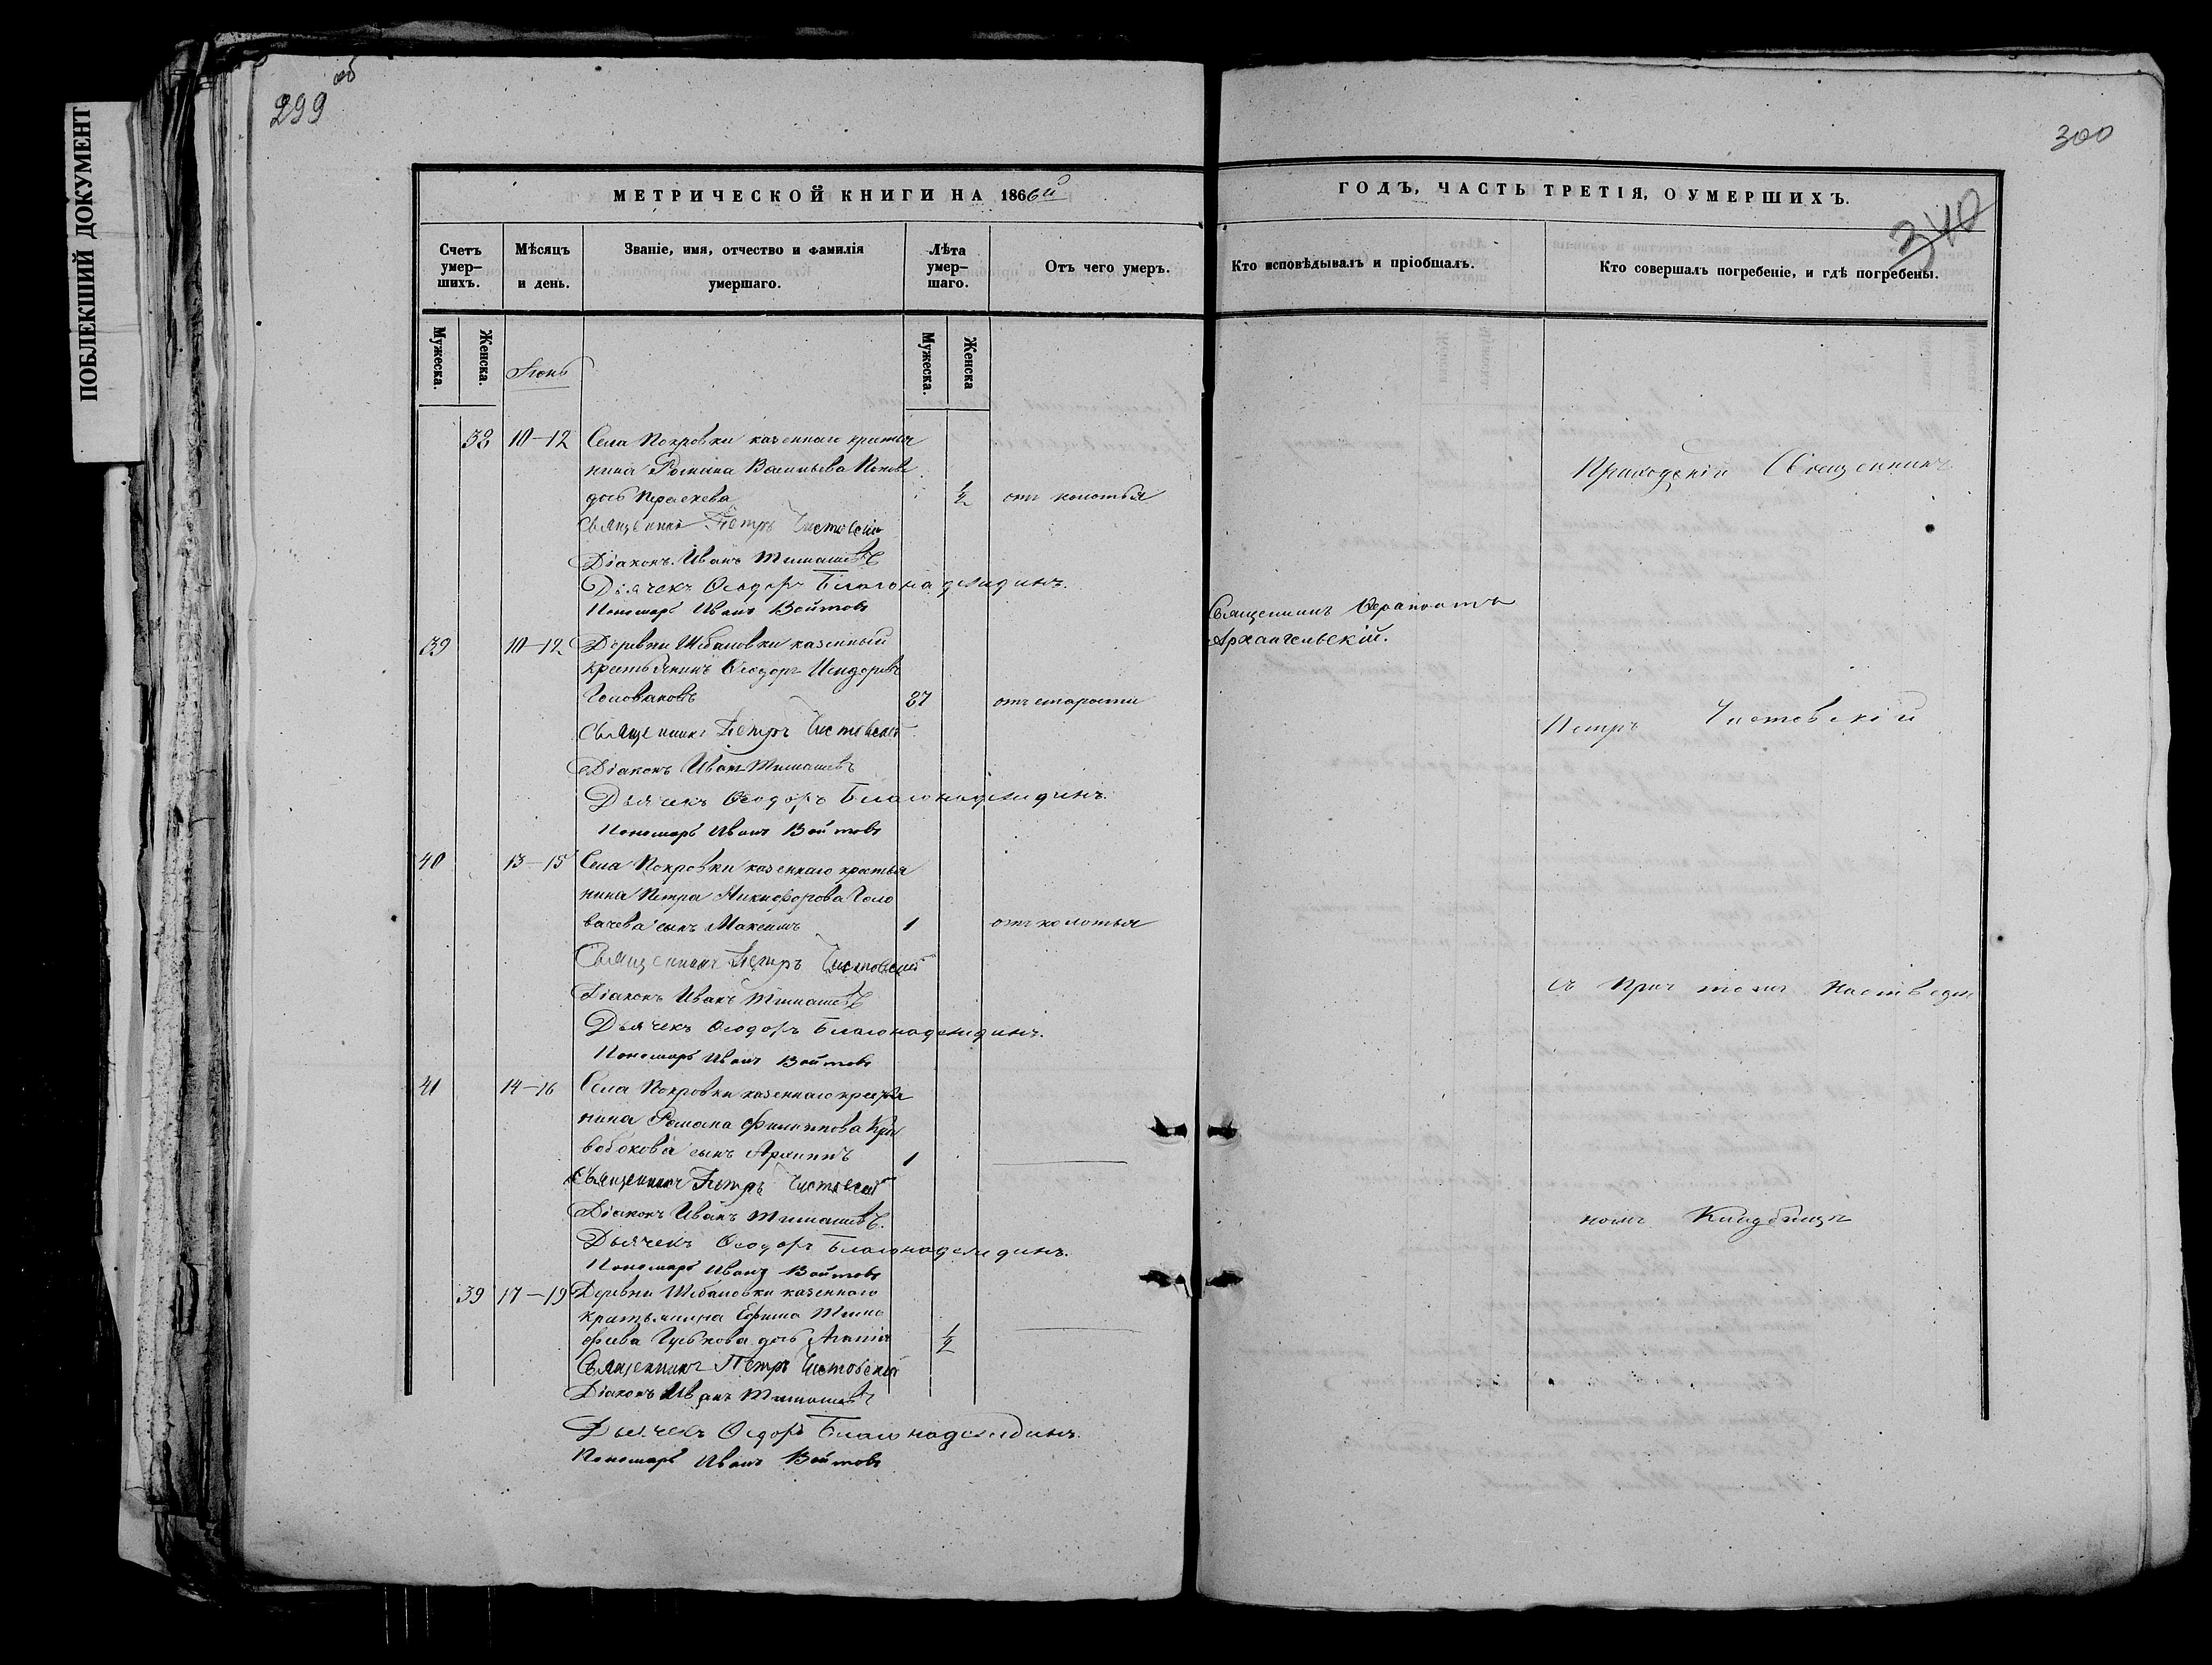 ПОБЛЕКШИЙ ДОКУМЕНТ
299 об
МЕТРИЧЕСКОЙ КНИГИ НА 1866й
Счетъ умер-шихъ.
Мѣсяцъ и день.
Званіе, имя, отчество и фамилія умершаго.
Лѣта умер-шаго.
Отъ чего умеръ.
Мужеска.
Женска.
Мужеска.
Женска
38 10–12 Села Покровки казеннаго крестья
нина Романа Васильева
дочь ½ отъ колотья
Священникъ Петръ Чистовскій
Діаконъ Иванъ Тимашевъ
Дьячекъ Ѳеодоръ Благонадеждинъ.
Пономарь Иванъ Войтовъ
39 10–12 Деревни казенный
крестьянинъ Ѳеодоръ Исидоровъ
Головановъ 87 отъ старости
Священникъ Петръ Чистовскій
Діаконъ Иванъ Тимашевъ
Дьячекъ Ѳеодоръ Благонадеждинъ.
Пономарь Иванъ Войтовъ
40 13–15 Села Покровки казеннаго крестья
нина Петра Никифорова Голо
вачева сынъ Максимъ 1 отъ колотья
Священникъ Петръ Чистовскій
Діаконъ Иванъ Тимашевъ
Дьячекъ Ѳеодоръ Благонадеждинъ.
Пономарь Иванъ Войтовъ
41 14–16 Села Покровки казеннаго крестья
нина Романа Филиппова Кри
вобокова сынъ Архиппъ 1
Священникъ Петръ Чистовскій
Діаконъ Иванъ Тимашевъ.
Дьячекъ Ѳеодоръ Благонадеждинъ.
Пономарь Иванъ Войтовъ
39 17–19 Деревни казеннаго
крестьянина Ефима Тимо
феева дочь Агапія ½
Священникъ Петръ Чистовскій
Діаконъ Иванъ Тимашевъ
Дьячекъ Ѳеодоръ Благонадеждинъ.
Пономарь Иванъ Войтовъ
300
ГОДЪ, ЧАСТЬ ТРЕТІЯ, О УМЕРШИХЪ.
340
Кто исповѣдывалъ и пріобщалъ.
Кто совершалъ погребеніе, и гдѣ погребены.
Приходскій Священникъ
Священникъ Ѳерапонтъ
Архангельскій.
Петръ Чистовскій
съ Причтомъ
номъ Кладбищѣ